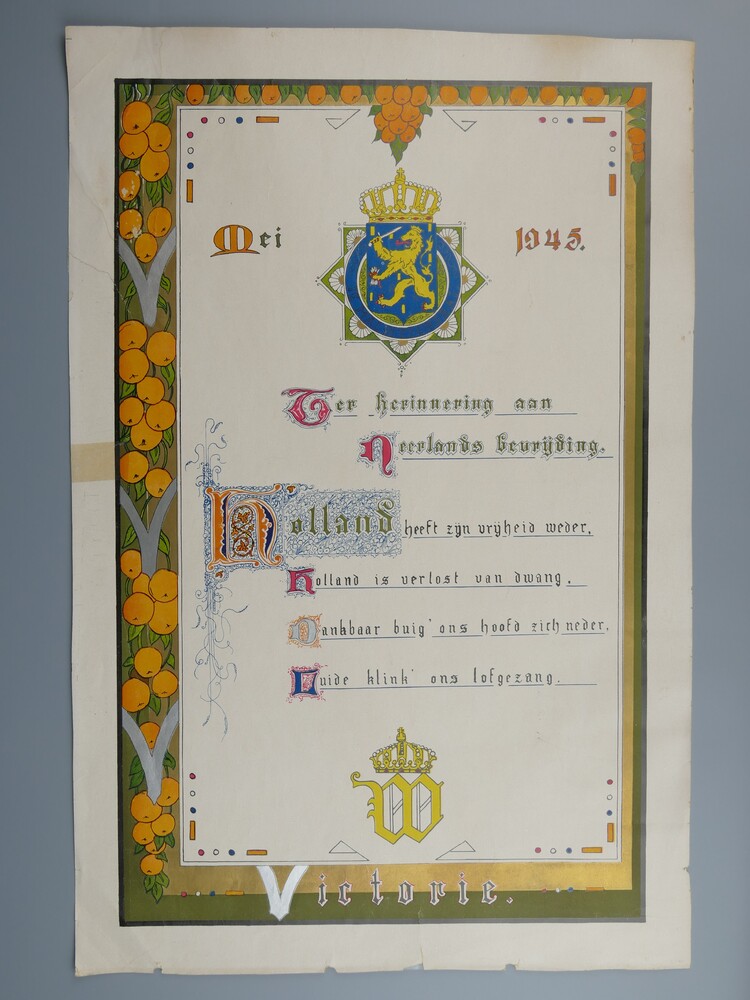 Mei 1945.
Ter herinnering aan
Neerlands bevrijding.
Holland heeft zijn vrijheid weder,
Holland is verlost van dwang,
Dankbaar buig' ons hoofd zich neder,
Luide klink' ons lofgezang.
W
V
V
V
Victorie.